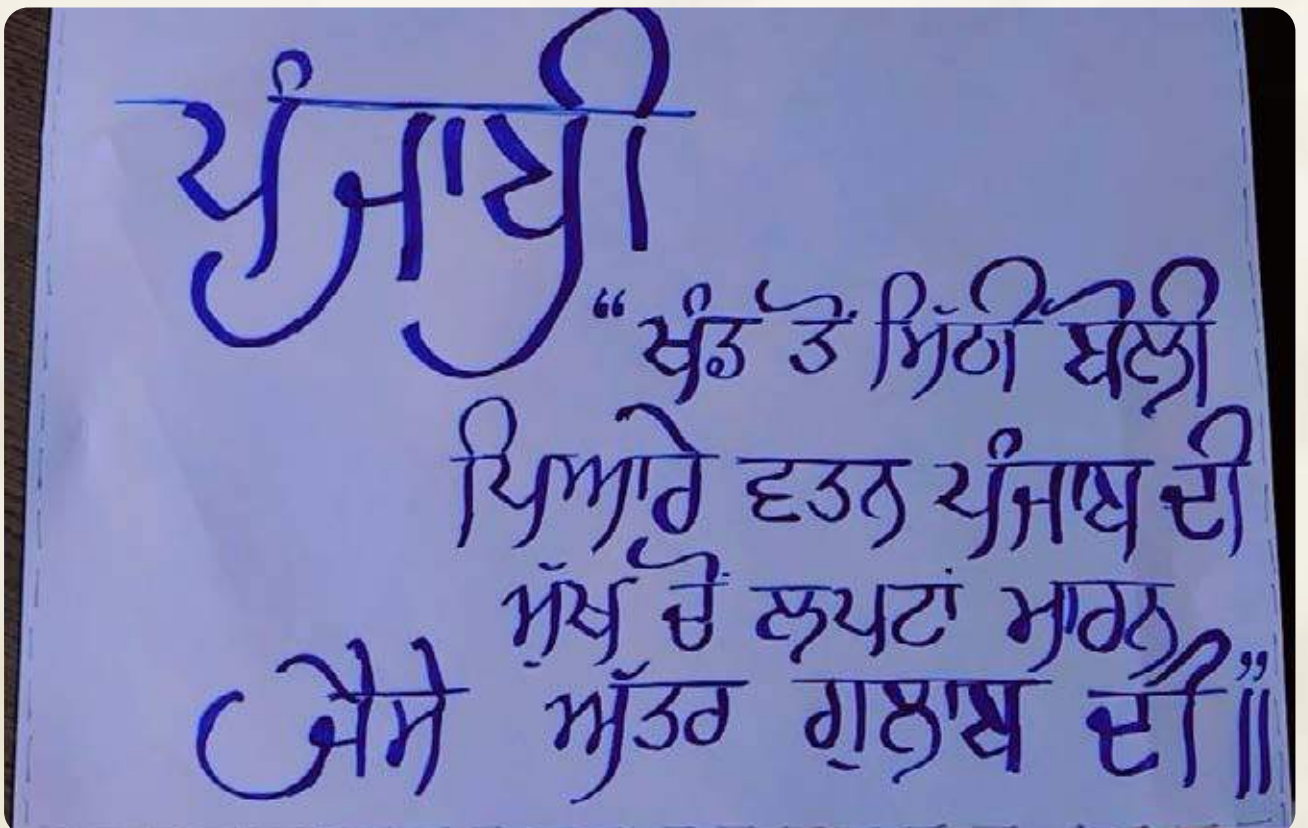 ਪੰਜਾਬੀ
“ਖੰਡ ਤੋਂ ਮਿੱਠੀ ਬੋਲੀ
ਪਿਆਰੇ ਵਤਨ ਪੰਜਾਬ ਦੀ
ਮੁੱਖ ਚੋਂ ਲਪਟਾਂ ਮਾਰਨ
ਜੈਸੇ ਅੱਤਰ ਗੁਲਾਬ ਦੀ”॥